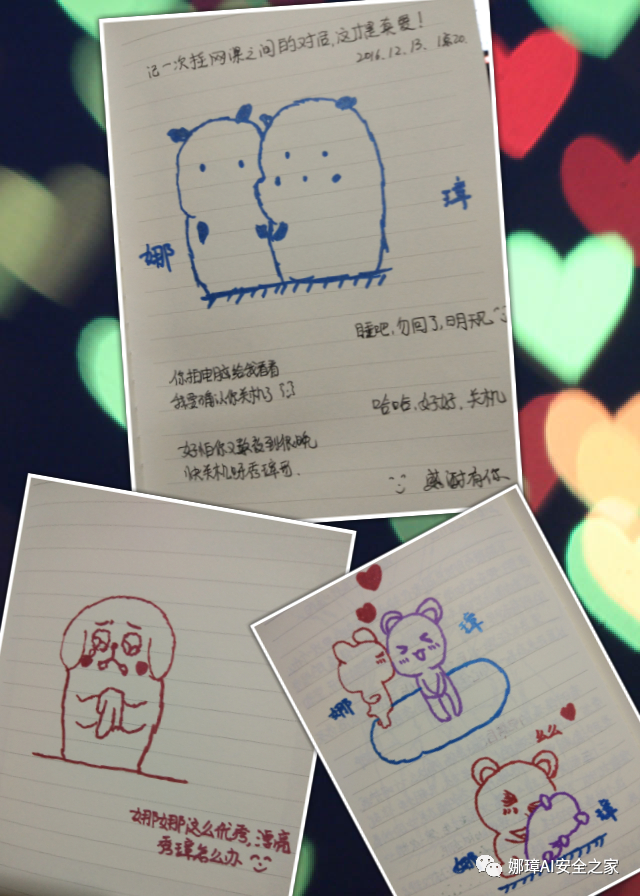 记一次挂网课之间的对话,这才是真爱!
2016.12.13. 1:20.
娜
璋
睡吧,勿回了,明天见
你拍电脑给我看看
我要确认你关机了
哈哈,好好,关机
好怕你又敲到很晚
快关机呀秀璋哥.
感谢有你
娜娜这么优秀,漂亮
秀璋怎么办
璋
娜
么么
璋
娜
娜璋AI安全之家